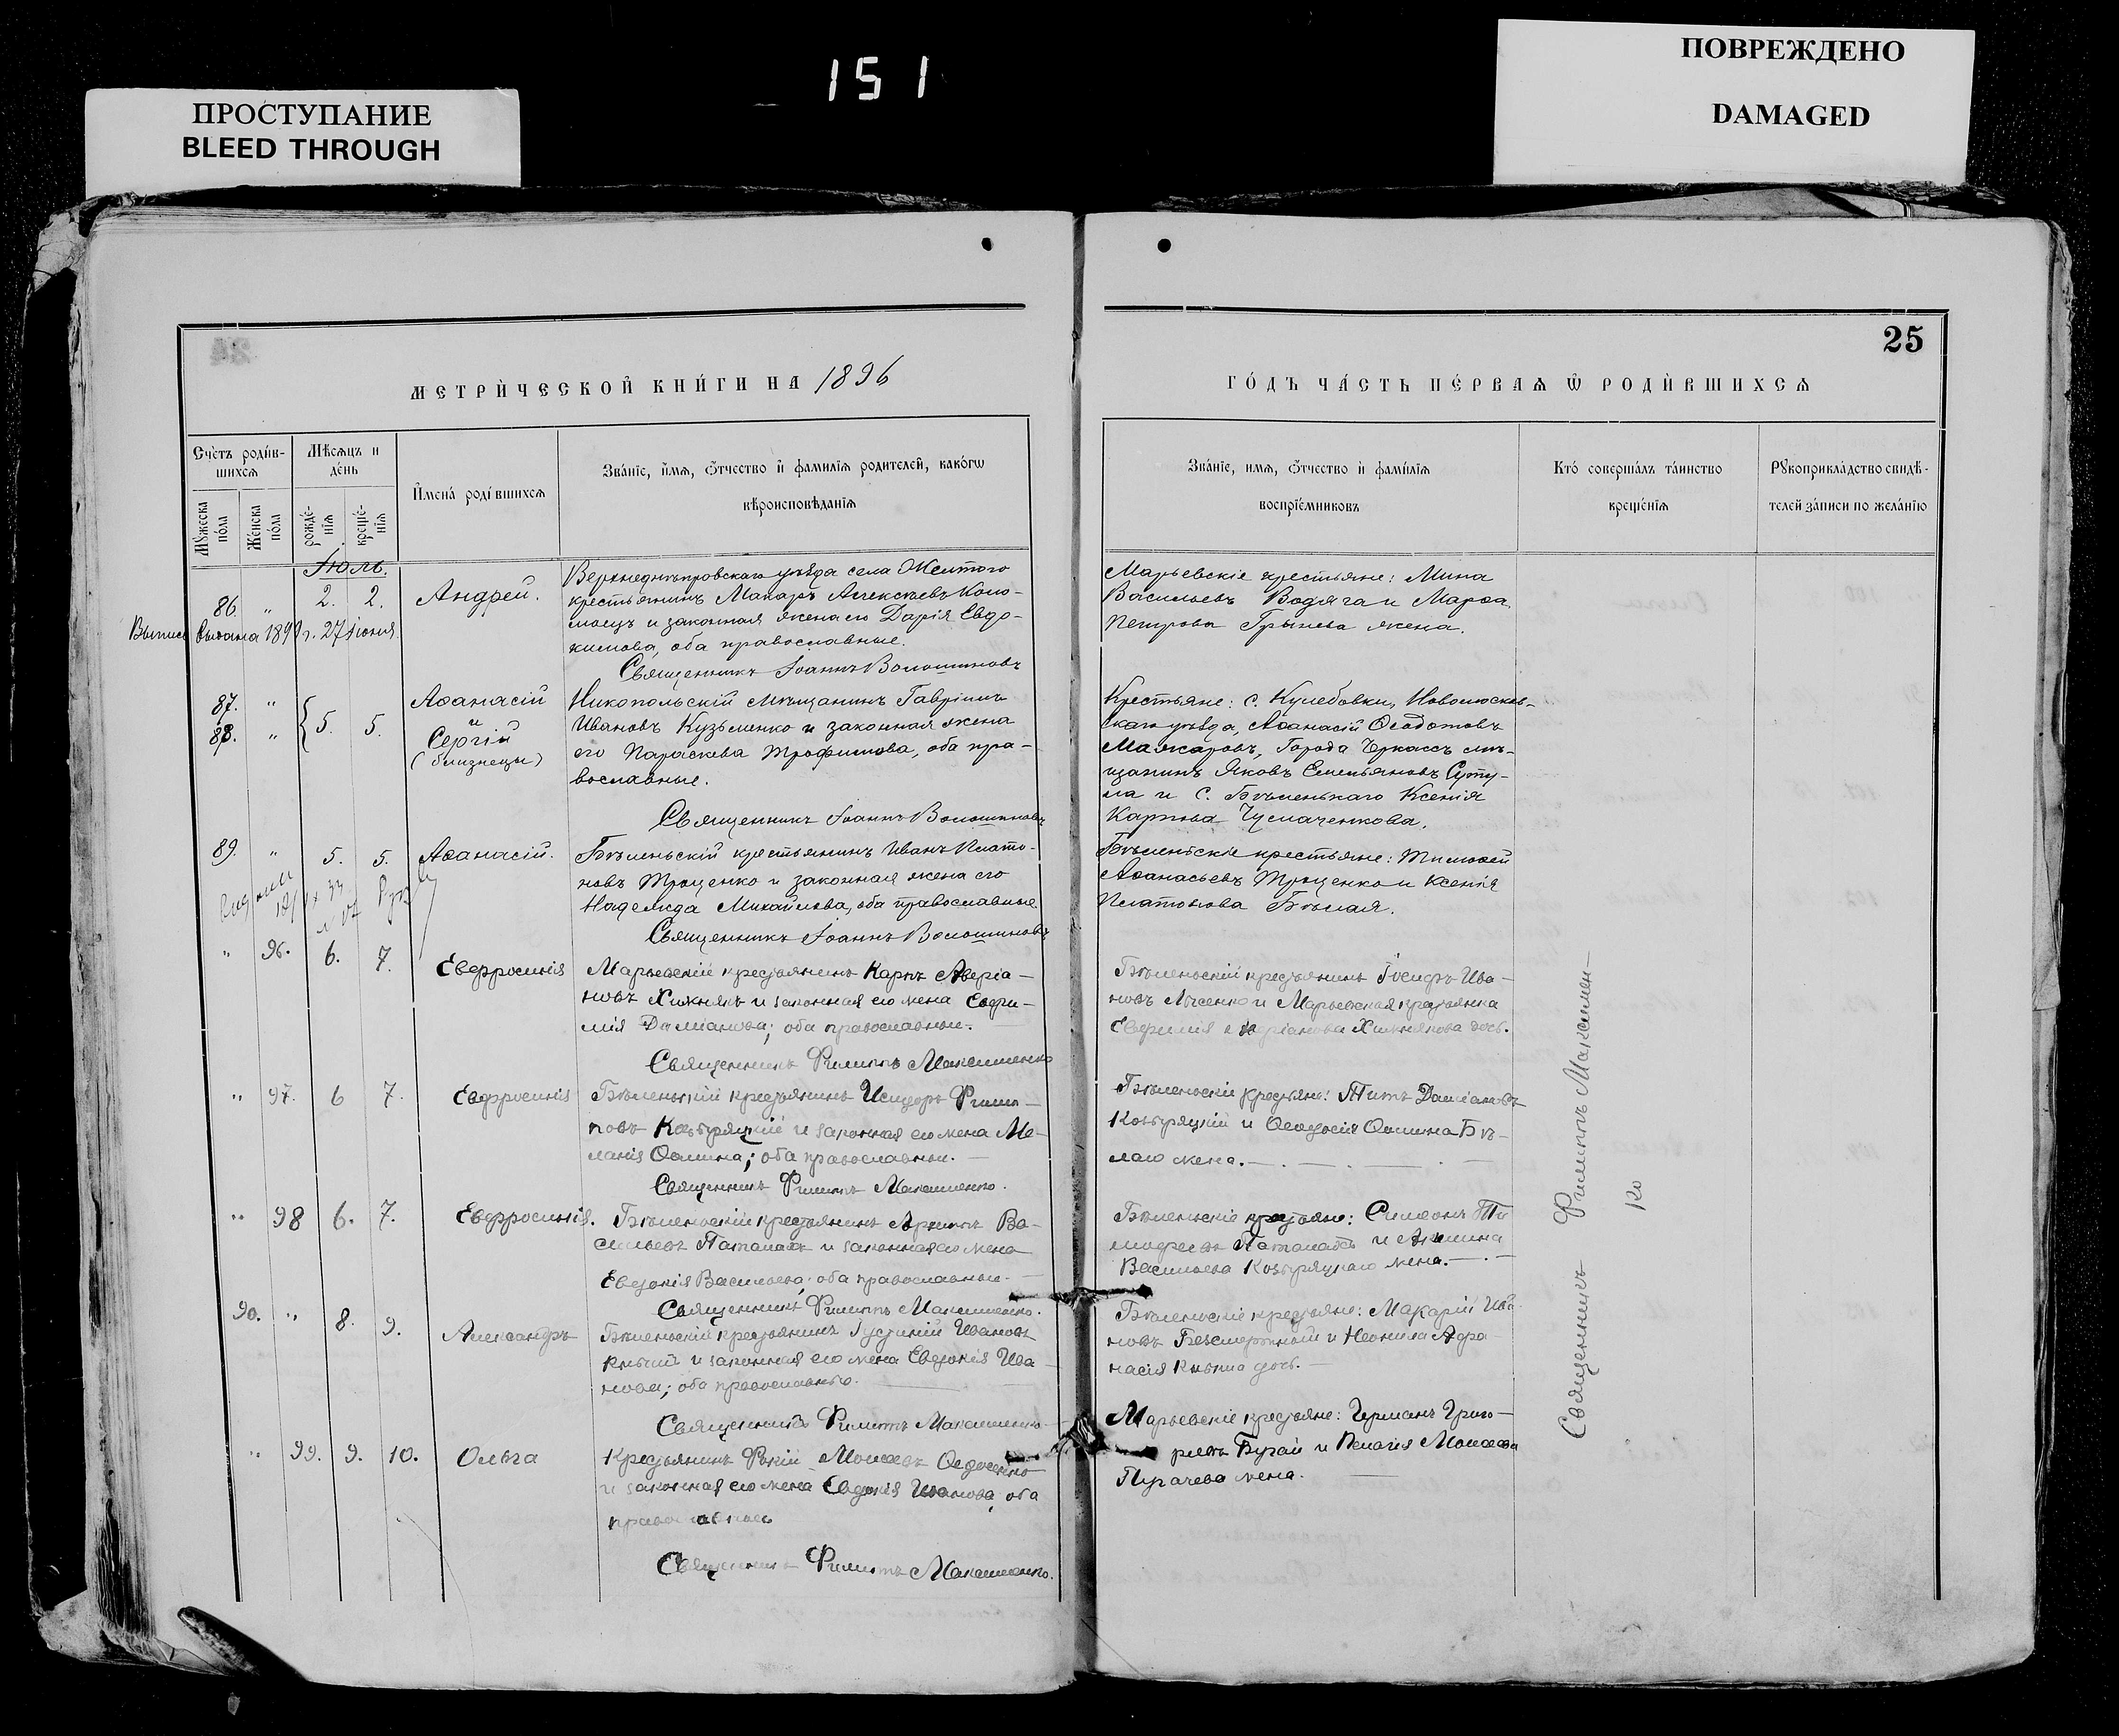 151
ПРОСТУПАНИЕ
BLEED THROUGH
ПОВРЕЖДЕНО
DAMAGED
25
МЕТРИ́ЧЕСКОЙ КНИ́ГИ НА 1896
ГО́ДЪ ЧА́СТЬ ПЕ́РВАѦ Ѿ РОДИ́ВШИХСѦ
Сче́тъ роди́в-
шихсѧ
Мꙋжеска
по́ла
Же́нска
по́ла
Мѣсѧцъ и
де́нь
рожде́-
нїѧ
креще́-
нїѧ
И҆мена́ роди́вшихсѧ
Зва́нїе, и҆мѧ, ѻ҆тчество и҆ фамилїѧ родителей, како́гѡ
вѣроисповѣданїѧ
Зва́нїе, имѧ, ѻ҆тчество и҆ фами́лїѧ
воспрїе́мниковъ
Кто́ соверша́лъ та́инство
креще́нїѧ
Рꙋкоприкла́дство свидѣ́-
телей за́писи по жела́нїю
Іюль.
86. " 2. 2. Андрей.
Верхнеднѣпровскаго уѣзда села Желтого
крестьянинъ Макаръ Алексѣевъ Коло-
моецъ и законная жена его Дарія Евдо-
кимова, оба православные.
Священникъ Іоаннъ Волошиновъ
Марьевскіе крестьяне: Мина
Васильевъ Водяга и Марѳа
Петрова Грынева жена.
выдана 27 Іюня.
87. "
88. " 5. 5.
Аѳанасій
и
Сергій
(близнецы)
Никопольскій мѣщанинъ Гавріилъ
Ивановъ Кузьменко и законная жена
его Параскева Трофимова, оба пра-
вославные.
Священникъ Іоаннъ Волошиновъ
Крестьяне: с. Кулебовки, Новомосков-
скаго уѣзда, Аѳанасій Ѳеодотовъ
Мажаровъ, Города Черкассъ мѣ-
щанинъ Яковъ Емельяновъ Суту-
ла и С. Бѣленькаго Ксенія
Карпова Чумаченкова.
89. " 5. 5. Аѳанасій.
Бѣленьскій крестьянинъ Иванъ Плато-
новъ Троценко и законная жена его
Надежда Михайлова, оба православные
Священникъ Іоаннъ Волошиновъ
Бѣленьскіе крестьяне: Тимоѳей
Аѳанасьевъ Троценко и Ксенія
Платонова Бѣлая.
" 96. 6. 7. Евфросинія
Марьевскій крестьянинъ Карпъ Аверіа-
новъ Хижнякъ и законная его жена Евфи-
мія Даміанова; оба православные.
Священникъ Филиппъ Максименко
Бѣленьскій крестьянинъ Іосифъ Ива-
новъ Лысенко и Марьевская крестьянка
Евфимія Хижнякова дочь.
" 97. 6 7. Евфросинія
Бѣленьскій крестьянинъ Исидоръ Филип-
повъ Козыряцкій и законная его жена Ме-
ланія Ѳомина; оба православные.
Священникъ Филиппъ Максименко.
Бѣленьскіе крестьяне: Титъ Даміановъ
Козыряцкій и Ѳеодосія Ѳомина Бѣ-
лаго жена.
" 98 6. 7. Евфросинія.
Бѣленьскій крестьянинъ Архипъ Ва-
сильевъ Паталахъ и законная его жена
Евдокія Васильева; оба православные.
Священникъ Филиппъ Максименко.
Бѣленьскіе крестьяне: Симеонъ Ти
мофеевъ и Акилина
Васильева Козыряцкаго жена.
90. " 8. 9. Александръ
Бѣленьскій крестьянинъ Іустиній Ивановъ
и законная его жена Евдокія Ива-
нова; оба православные.
Священникъ Филиппъ Максименко
Бѣленьскіе крестьяне: Макарій Ива-
новъ Безсмертный и Неонила Афа-
насія дочь.
" 99. 9. 10. Ольга
Крестьянинъ Моисеевъ Ѳедосенко
и законная его жена Евдокія Иванова оба
Священникъ Филиппъ Максименко.
Марьевскіе крестьяне: Германъ Григо-
рьевъ Бугай и Пелагія Моисеева
Пугачева жена.
Священникъ Филиппъ Максимен-
ко